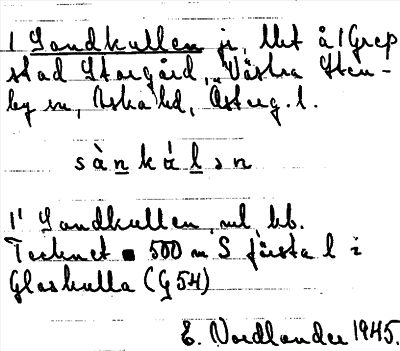 1 Sandkullen ji, litet å 1 Grep
stad Storgård, Västra Sten-
by sn, Aska hd, Österg. l.
sàn kálən
1' Sandkullen, ml, bb.
Tecknet ■ 500 m S första l i
Glaskulla (G 54)
E. Nordlander 1945.